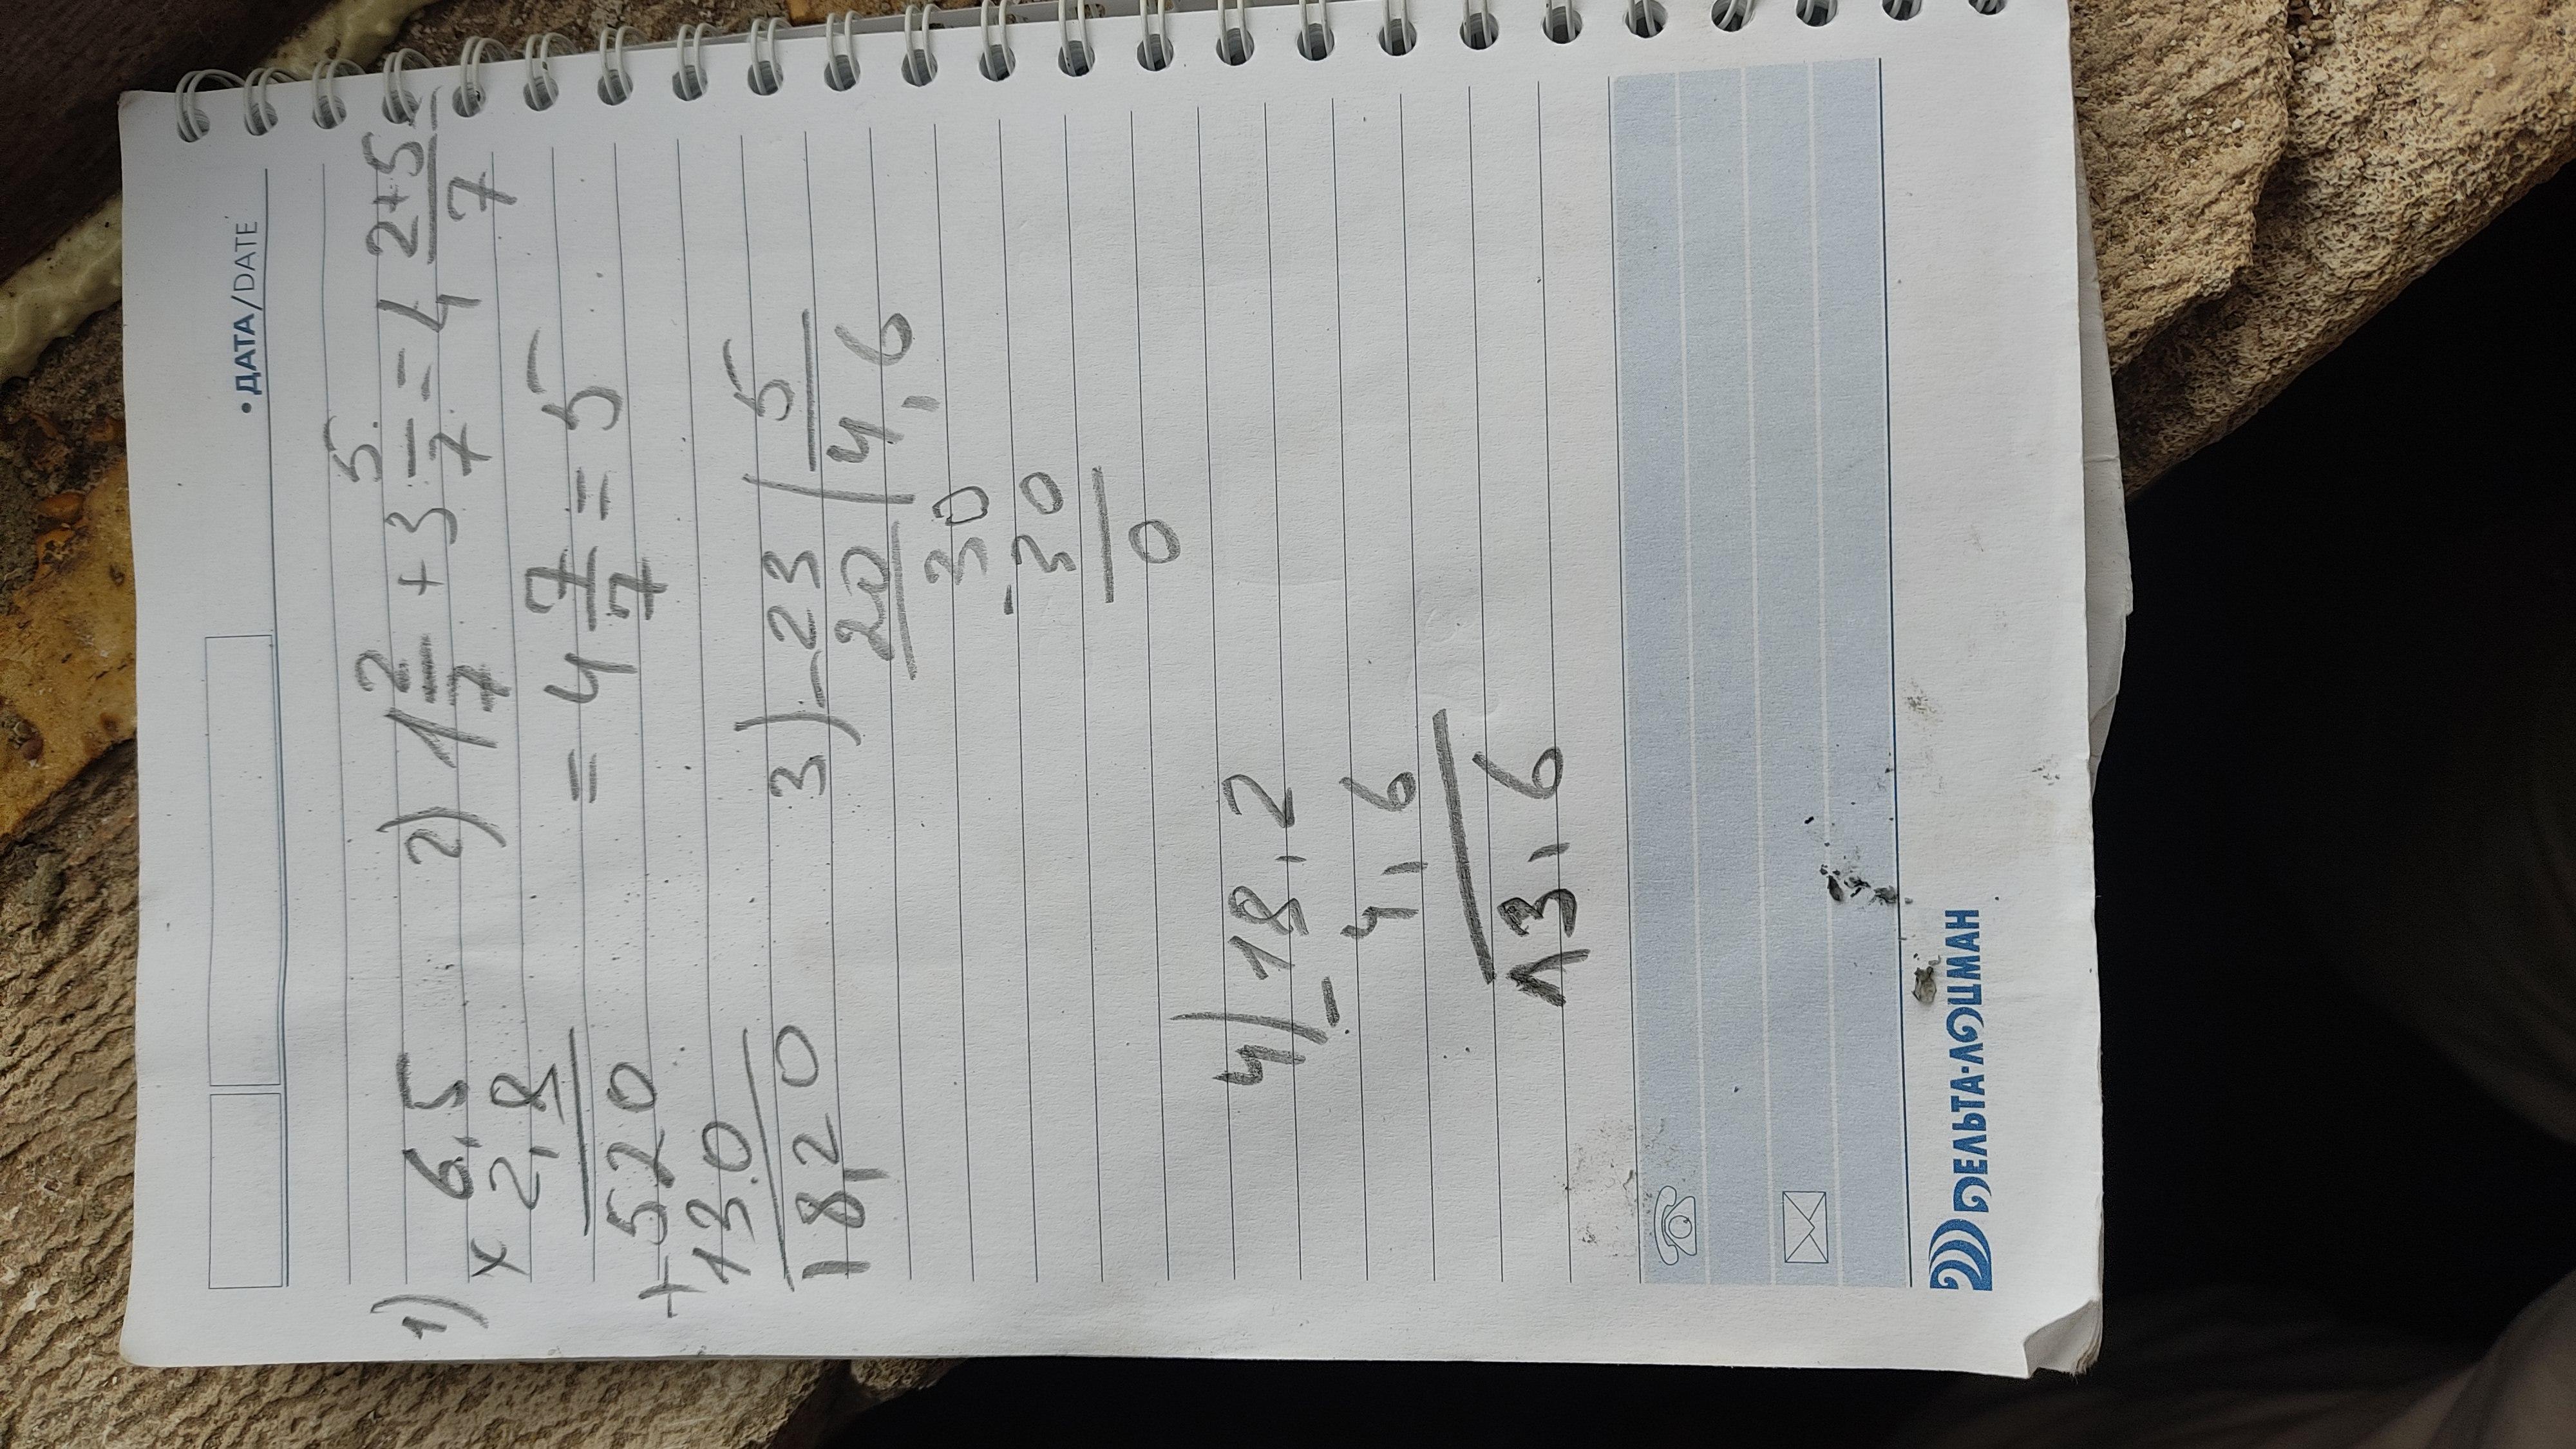 • ДАТА/DATE
1) 6,5
× 2,8
520
+ 130
18,20
2) 1 2/7 + 3 5/7 = 4 2+5/7 =
= 4 7/7 = 5
3) - 23 | 5
20 | 4,6
30
- 30
0
4) 18,2
- 4,6
13,6
ДЕЛЬТА-ЛОЦМАН